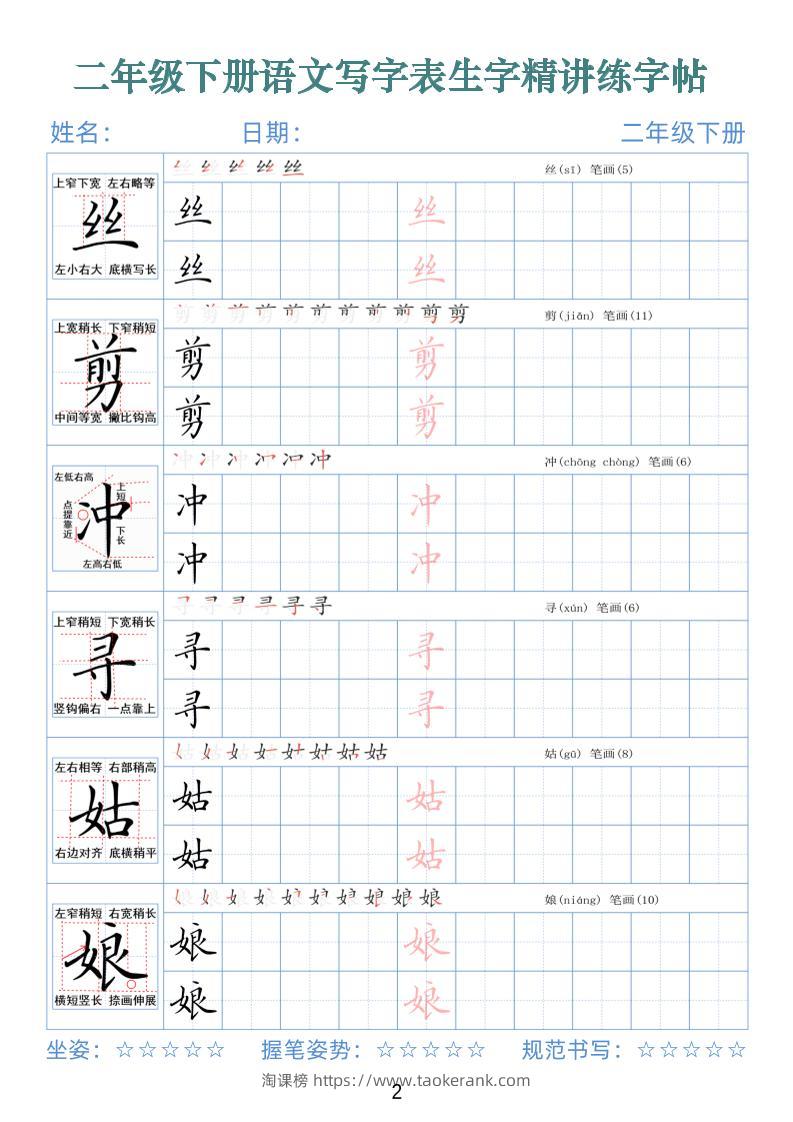 二年级下册语文写字表生字精讲练字帖
姓名： 日期： 二年级下册
丝(sī) 笔画(5)
上窄下宽 左右略等
丝
左小右大 底横写长
丝 丝
丝 丝
剪(jiǎn) 笔画(11)
上宽稍长 下窄稍短
剪
中间等宽 撇比钩高
剪 剪
剪 剪
冲(chōng chòng) 笔画(6)
左低右高
上短
点提靠近
冲
下长
左高右低
冲 冲
冲 冲
寻(xún) 笔画(6)
上窄稍短 下宽稍长
寻
竖钩偏右 一点靠上
寻 寻
寻 寻
姑(gū) 笔画(8)
左右相等 右部稍高
姑
右边对齐 底横稍平
姑 姑
姑 姑
娘(niáng) 笔画(10)
左窄稍短 右宽稍长
娘
横短竖长 捺画伸展
娘 娘
娘 娘
坐姿：☆☆☆☆☆ 握笔姿势：☆☆☆☆☆ 规范书写：☆☆☆☆☆
淘课榜 https://www.taokerank.com
2